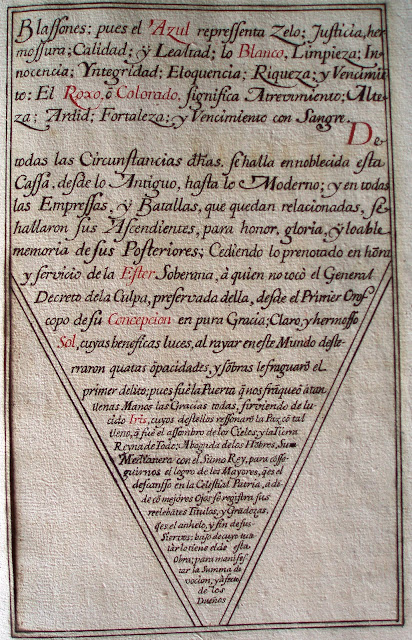 Blassones; pues el Azul repressenta Zelo; Justicia, her
mossura; Calidad; ÿ Lealtad; lo Blanco, Limpieza; In
nocencia; Yntegridad; Eloquencia; Riqueza; y Vencimie
to; El Roxo, ô Colorado, significa Atrevimiento; Alte
za; Ardid; Fortaleza; y Vencimiento con Sangre.
De
todas las Circunstancias dhas, se halla ennoblecida esta
Cassa, desde lo Antiguo, hasta lo Moderno; y en todas
las Empressas, y Batallas, que quedan relacionadas, se
hallaron sus Ascendientes, para honor, gloria, y loable
memoria de sus Posteriores; Cediendo lo prenotado en honra
y servicio de la Ester Soberana, à quien no tocò el General
Decreto de la Culpa, preservada della, desde el Primer Oros
copo de su Concepcion en pura Gracia; Claro, y hermosso
Sol, cuyas beneficas luces, al rayar en este Mundo deste
rraron quatas opacidades, y sobras le fraguaró el
primer delito; pues fue la Puerta q̃ nos fráqueó a tan
llenas Manos las Gracias todas, sirviendo de lu
cido Iris, cuyos destellos ressonaró la Paz, có tal
lleno, q̃ fue el assombro de los Cielos, y la Tierra
Reyna de Todo; Abogada de los Hóbres, Suma
Medianera con el Sumo Rey, para cósse
guirnos el logro de los Mayores, q̃ es el
descansso en la Celestial Patria, à dó
de có mejores Ojos se registra sus
Titulos, y Grádezas,
q̃ es el anhelo, y fin de sus
Siervos: bajo de cuyo
lo tiene esta
Obra; para manifes
tar la Summa de
vocion,
de los
Dueños